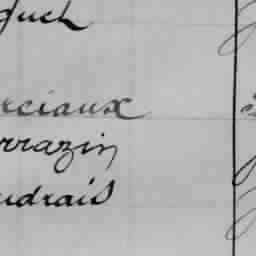 guch
rciaux
rrazin
udrais